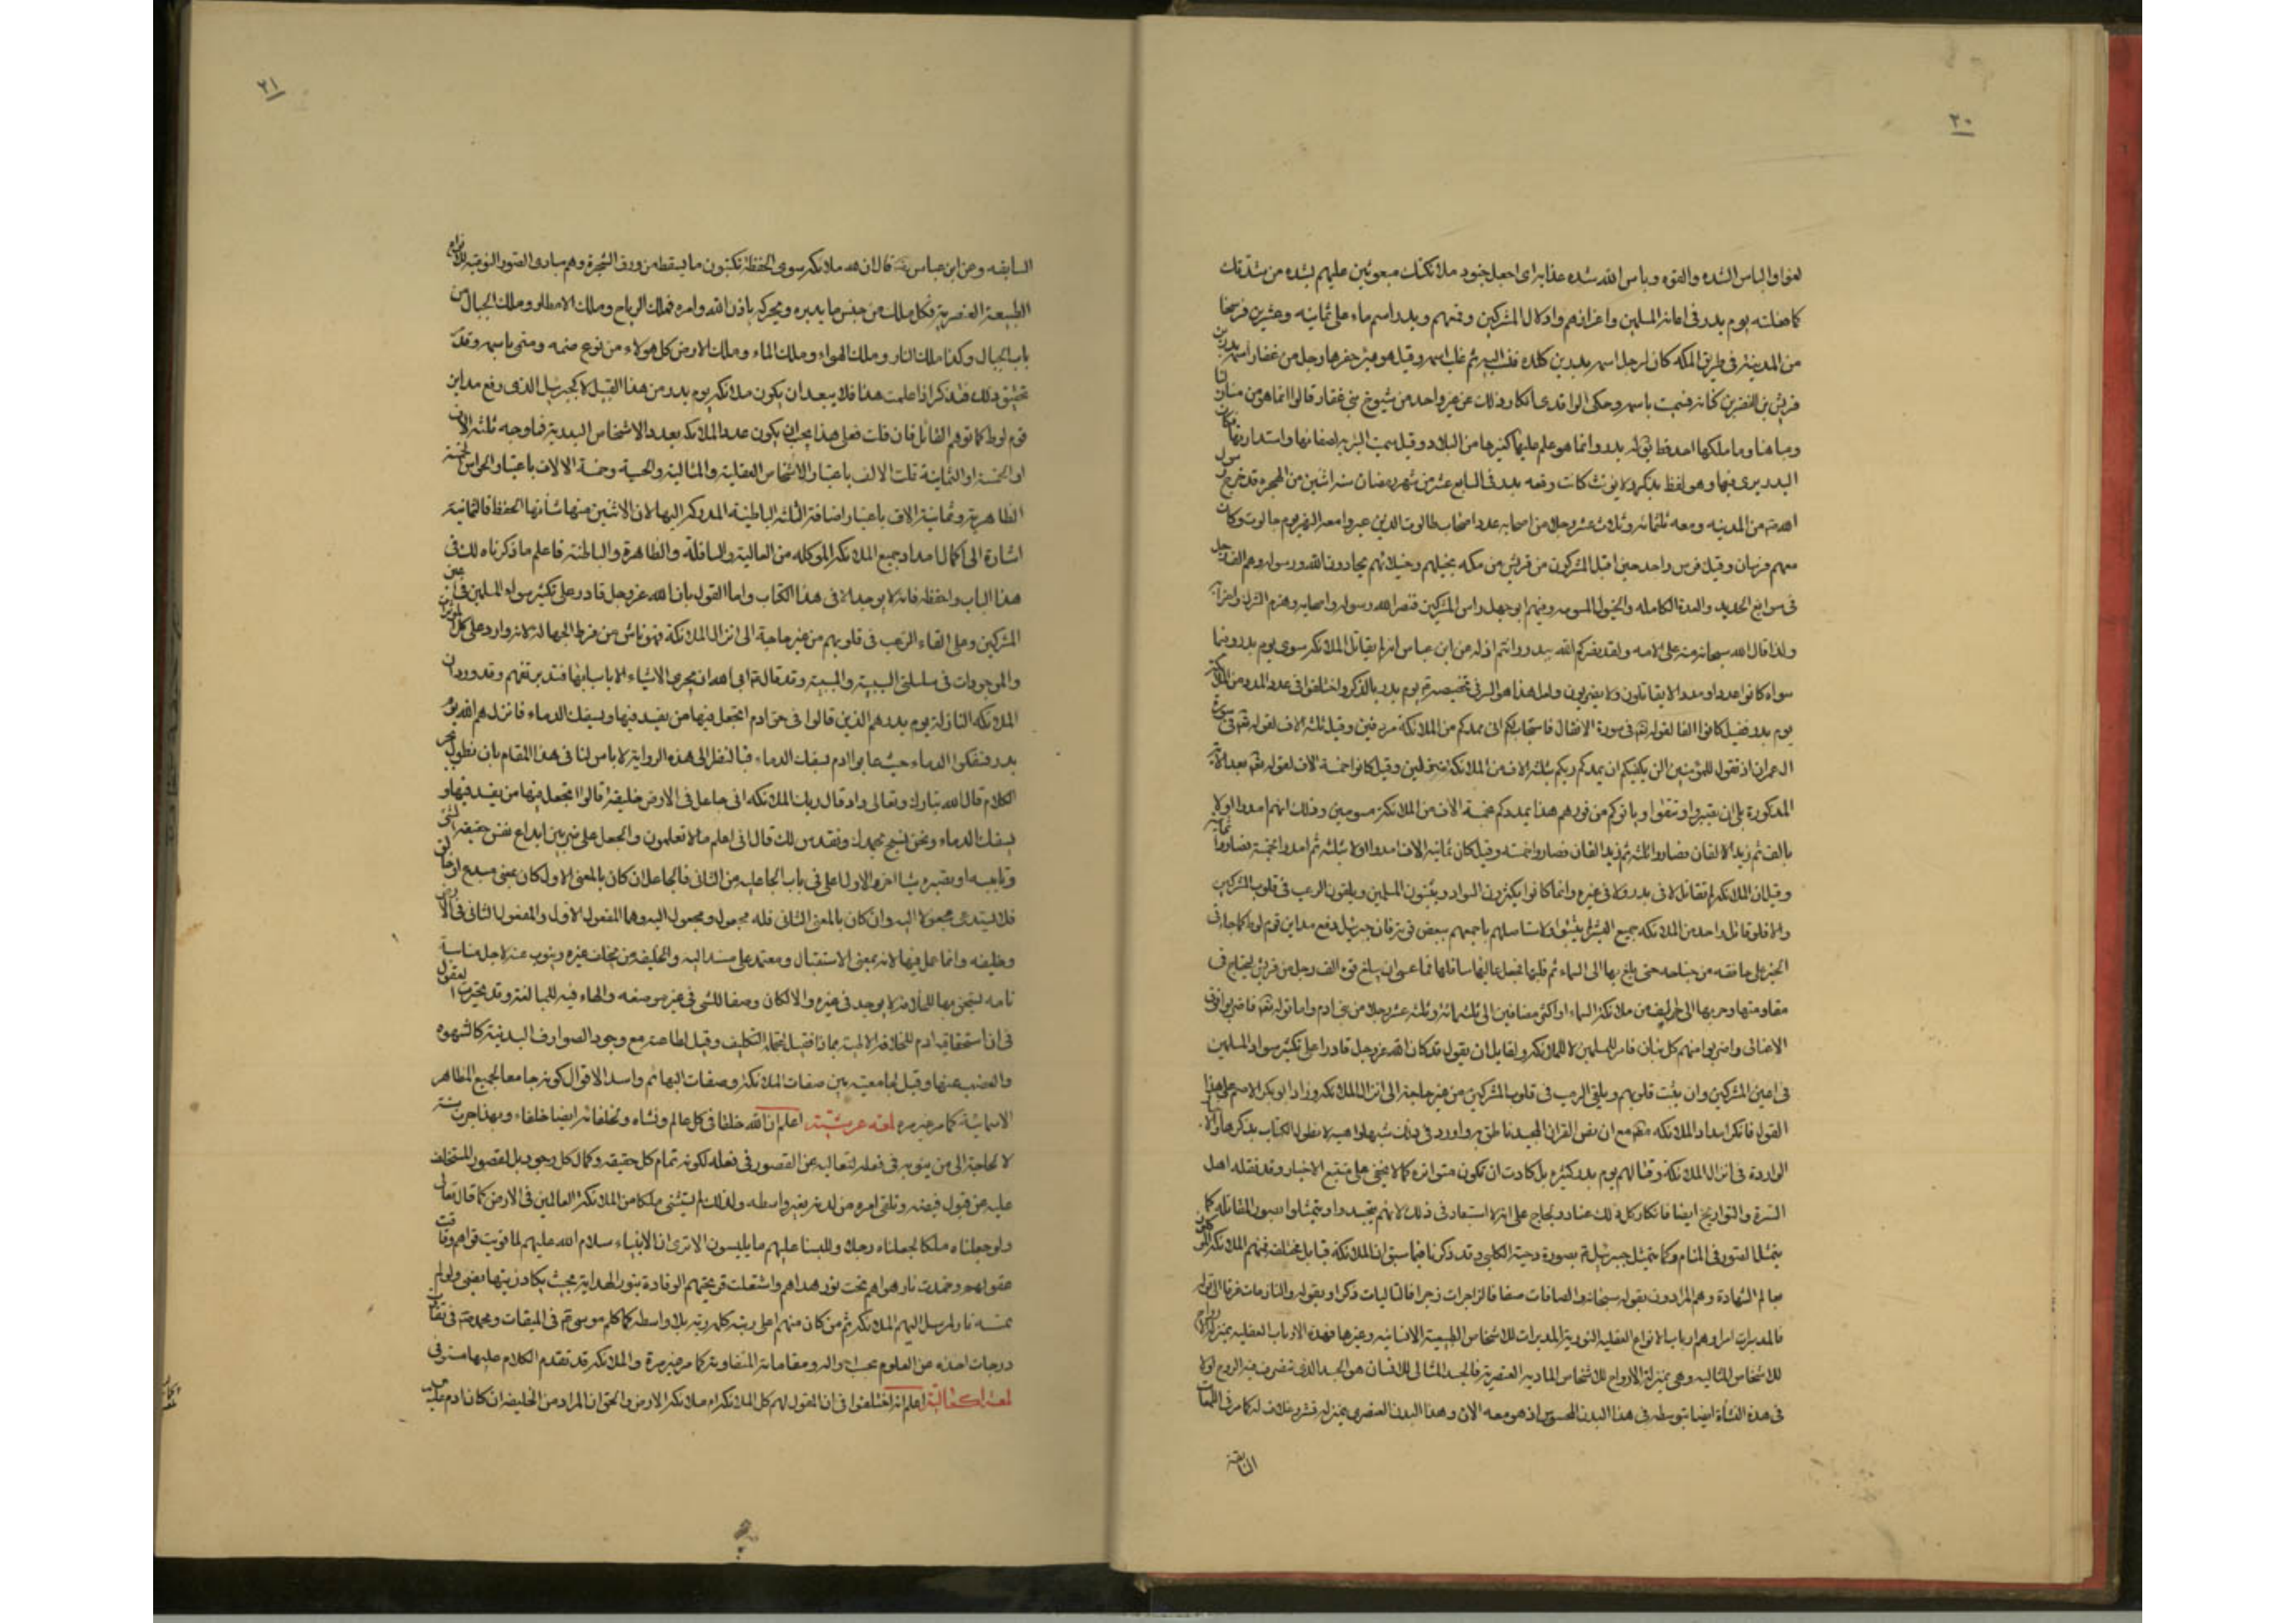 ٢٠
لغوا والباس الشده والقوه وباس الله شده عذابه اى اجعل جنود ملائكتك مبعوثين عليهم بشده من شدتك
كما فعلته يوم بدر فى اعانة المسلمين واعزازهم واذلال المشركين وقتلهم وبدر اسم ماء على ثمانيه وعشرين فرسخا
من المدينة فى طريق المكه كان لرجل اسمه بدر بن كلده فنسب اليه ثم غلب اسمه وقيل هو بئر حفرها رجل من غفار اسمه بدر بن
قريش بن النضر بن كنانه فسميت باسمه وحكى الواقدى انكار ذلك عن غير واحد من شيوخ بنى غفار قالوا انما هو من منازلنا
ومياهنا وما ملكها احد قط يقال له بدر وانما هو علم عليها كغيرها من البلاد وقيل سميت البئر به لصفائها واستدارتها فكان
البدر يرى فيها وهو لفظ يذكر ولا يؤنث كانت وقعه بدر فى السابع عشر من شهر رمضان سنه اثنين من الهجره قد خرج رسول
الله ص من المدينه ومعه ثلثمائه وثلث عشر رجلا من اصحابه عدد اصحاب طالوت الذين عبروا معه النهر يوم جالوت وكان
معهم فرسان وقيل فرس واحد حين اقبل المشركون من قريش من مكه بخيلهم وخيلائهم يحادون الله ورسوله وهم الف رجل
فى سوابغ الحديد والعدة الكامله والخيول المسومه وفيهم ابو جهل راس المشركين فنصر الله رسوله واصحابه وهزم الشرك واحزابه
ولذا قال الله سبحانه منه على الامه ولقد نصركم الله ببدر وانتم اذله عن ابن عباس انه لم يقاتل الملائكه سوى يوم بدر وفيما
سواه كانوا عددا ومددا لا يقاتلون ولا يضربون ولعل هذا هو السر فى تخصيصه يوم بدر بالذكر واختلفوا فى عدد المدد من الملائكة
يوم بدر فقيل كانوا الفا لقوله تعالى فى سورة الانفال فاستجاب لكم انى ممدكم من الملائكة مردفين وقيل ثلثه الاف لقوله تعالى فى سورة
ال عمران اذ تقول للمؤمنين الن يكفيكم ان يمدكم ربكم بثلثة الاف من الملائكة منزلين وقيل كانوا خمسة الاف لقوله تعالى بعد الاية
المذكورة بلى ان تصبروا وتتقوا وياتوكم من فورهم هذا يمددكم بخمسة الاف من الملائكة مسومين وذلك انهم امدوا اولا
بالف ثم زيد الالفان فصاروا ثلثة ثم زيد الفان فصاروا خمسه وقيل كان ثمانيه الاف امدوا اولا بثلثه ثم امدوا بخمسة فصاروا ثمانيه
وقيل ان الملائكه لم تقاتل لا فى بدر ولا فى غيره وانما كانوا يكثرون السواد ويثبتون المسلمين ويلقون الرعب فى قلوب المشركين
والا فلو قاتل واحد من الملائكه جميع البشر لاستاصلهم باجمعهم ببعض قوته فان جبرئيل رفع مداين قوم لوط كما جاء فى
الخبر على خافقه من جناحه حتى بلغ بها الى السماء ثم قلبها فجعل عاليها سافلها فما عسى ان يبلغ قوه الف رجل من قريش ليحتاج فى
مقاومتها وحربها الى الف من ملائكة السماء او اكثر مضافين الى ثلثمائة وثلثه عشر رجلا من بنى ادم واما قوله تعالى فاضربوا فوق
الاعناق واضربوا منهم كل بنان فامر للمسلمين لا للملائكه ولقايل ان يقول قد كان الله عز وجل قادرا على تكثير سواد المسلمين
فى اعين المشركين وان يثبت قلوبهم ويلقى الرعب فى قلوب المشركين من غير حاجة الى انزال الملائكه وزاد ابو بكر الاصم على هذا
القول فانكر امداد الملائكه مع ان نص القران المجيد ناطق به واورد فى ذلك شبها واهيه لا نطول الكتاب بذكرها والاثار
الواردة فى انزال الملائكة وقتالهم يوم بدر كثيره بل كادت ان تكون متواتره كما لا يخفى على متتبع الاخبار وقد نقله اهل
السيرة والتواريخ ايضا فانكار كل ذلك عناد ولجاج على انه لا استبعاد فى ذلك لانهم يتجسدوا ويتمثلوا بصور المقاتله كما
يتمثل الصور فى المنام وكما يتمثل جبرئيل بصورة دحية الكلبى وقد ذكرنا فيما سبق ان الملائكة قبايل مختلفه فمنهم الملائكة الموكلون
بعالم الشهادة وهم المرادون بقوله سبحانه والصافات صفا فالزاجرات زجرا فالتاليات ذكرا وبقوله والنازعات غرقا الى قوله
فالمدبرات امرا وهم ارباب الانواع العقليه النوريه المدبرات للاشخاص الطبيعية الانسانيه وغيرها فهذه الارباب العقليه بمنزلة الارواح
للاشخاص المثاليه وهى بمنزلة الارواح للاشخاص الماديه العنصريه فالجسد المثالى للانسان هو الجسد الذى تتصرف فيه الروح اولا
فى هذه النشأة ايضا بتوسطه فى هذا البدن المحسوس اذ هو معه الان وهذا البدن العنصرى بمنزله قشر وغلاف له كما مر فى اللمعات
السابقة
٢١
السابقه وعن ابن عباس قال ان لله ملائكه سوى الحفظة تكتبون ما يسقط من ورق الشجرة وهم مبادى الصور النوعيه للانواع
الطبيعة العنصريه فكل ملك من جنس ما يدبره ويحركه باذن الله وامره فملك الرياح وملك الامطار وملك الجبال من
باب الجبال وكذا ملك النار وملك الهواء وملك الماء وملك الارض كل هولاء من نوع صنمه ومتمى باسمه وقد
تحقيق ذلك فتذكر اذا علمت هذا فلا يبعد ان يكون ملائكه يوم بدر من هذا القبيل لا كجبرئيل الذى رفع مداين
قوم لوط كما توهم القائل فان قلت فعلى هذا يجب ان يكون عدد الملائكه بعدد الاشخاص البدريه فما وجه ثلثه الاف
او الخمسة او الثمانية قلت الالف باعتبار الاشخاص العقلية والمثالية والحسية وخمسة الالاف باعتبار الحواس الخمسة
الظاهرية وثمانية الاف باعتبار اضافة الثلثه الباطنية المدركه اليها لان الاثنين منها شانها الحفظ فالثمانية
اشارة الى اكمال امداد جميع الملائكه الموكله من العالية والسافلة والظاهرة والباطنه فاعلم ما ذكرناه لك فى
هذا الباب واحفظه فانه لا يوجد الا فى هذا الكتاب واما القول بان الله عز وجل قادر على تكثير سواد المسلمين فى اعين
المشركين وعلى القاء الرعب فى قلوبهم من غير حاجة الى انزال الملائكة فهو ناش من فرط الجهاله لانه وارد على كل المؤثرات
والموجودات فى سلسلتى السببية والمسببية وقد قال ابى الله ان يجرى الاشياء الا باسبابها فتدبر تفهم وقد ورد ان
الملائكه النازلة يوم بدر هم الذين قالوا فى حق ادم اتجعل فيها من يفسد فيها ويسفك الدماء فانزلهم الله يوم
بدر فسفكوا الدماء حيث عابوا ادم بسفك الدماء فبالنظر الى هذه الرواية لا باس لنا فى هذا المقام بان نطول
الكلام قال الله تبارك وتعالى واذ قال ربك للملائكه انى جاعل فى الارض خليفة قالوا اتجعل فيها من يفسد فيها و
يسفك الدماء ونحن نسبح بحمدك ونقدس لك قال انى اعلم ما لا تعلمون والجعل على ضربين ابداع نفس حقيقة الشى
وتاييسه او تصييره شيئا اخر والاول اعلى فى باب الجاعليه من الثانى فالجاعل ان كان بالمعنى الاول كان بمعنى مبدع او خالق
فلا يستدعى مجعولا اليه وان كان بالمعنى الثانى فله مجعول ومجعول اليه وهما المفعول الاول والمفعول الثانى فى الارض
وخليفه وانما عمل فيها لانه بمعنى الاستقبال ومعتمد على مسند اليه والخليفه من يخلف غيره وينوب عنه لاجل مناسبة
تامه يستحق بها للخلافة لا يوجد فى غيره والا لكان وصفا للشى فى غير موضعه والهاء فيه للمبالغة وقد تحيرت العقول
فى ان استحقاقيه ادم للخلافه الالهية بماذا فقيل لتحمله التكليف وقيل لطاعته مع وجود الصوارف البدنية كالشهوه
والغضب عنها وقيل لجامعيته بين صفات الملائكة وصفات البهائم واسد الاقوال كونه جامعا لجميع المظاهر
الاسمائية كما مر غير مره لمعه عرشية اعلم ان لله خلفا فى كل عالم ونشاه ولخلفائه ايضا خلفاء وبهذا جرت سنته
لا لحاجة الى من ينوبه فى فعله لتعاليه عن القصور فى فعله لكونه تمام كل حقيقه وكمال كل وجود بل لقصور المستخلف
عليه عن قبول فيضه وتلقى امره من لدنه بغير واسطه ولذلك لم يستثنى ملكا من الملائكة العالمين فى الارض كما قال تعالى
ولو جعلناه ملكا لجعلناه رجلا وللبسنا عليهم ما يلبسون الا ترى ان الانبياء سلام الله عليهم لما قويت قواهم وفاقت
عقولهم وخمدت نار هواهم تحت نور هداهم واشتعلت قريحتهم الوقادة بنور الهداية بحيث يكاد زيتها يضىء ولو لم
تمسسه نار ارسل اليهم الملائكه ثم من كان منهم اعلى رتبه كلمه ربه بلا واسطه كما كلم موسى فى الميقات ومحمد ص فى تفاوت
درجات اخذه عن العلوم بحسب احواله ومقاماته المتفاوتة كما مر غير مرة والملائكه قد تقدم الكلام عليها مستوفى
لمعه اعلم انه اختلفوا فى ان المقول لهم كل الملائكه ام ملائكه الارض والحق ان المراد من الخليفه ان كان ادم عليه